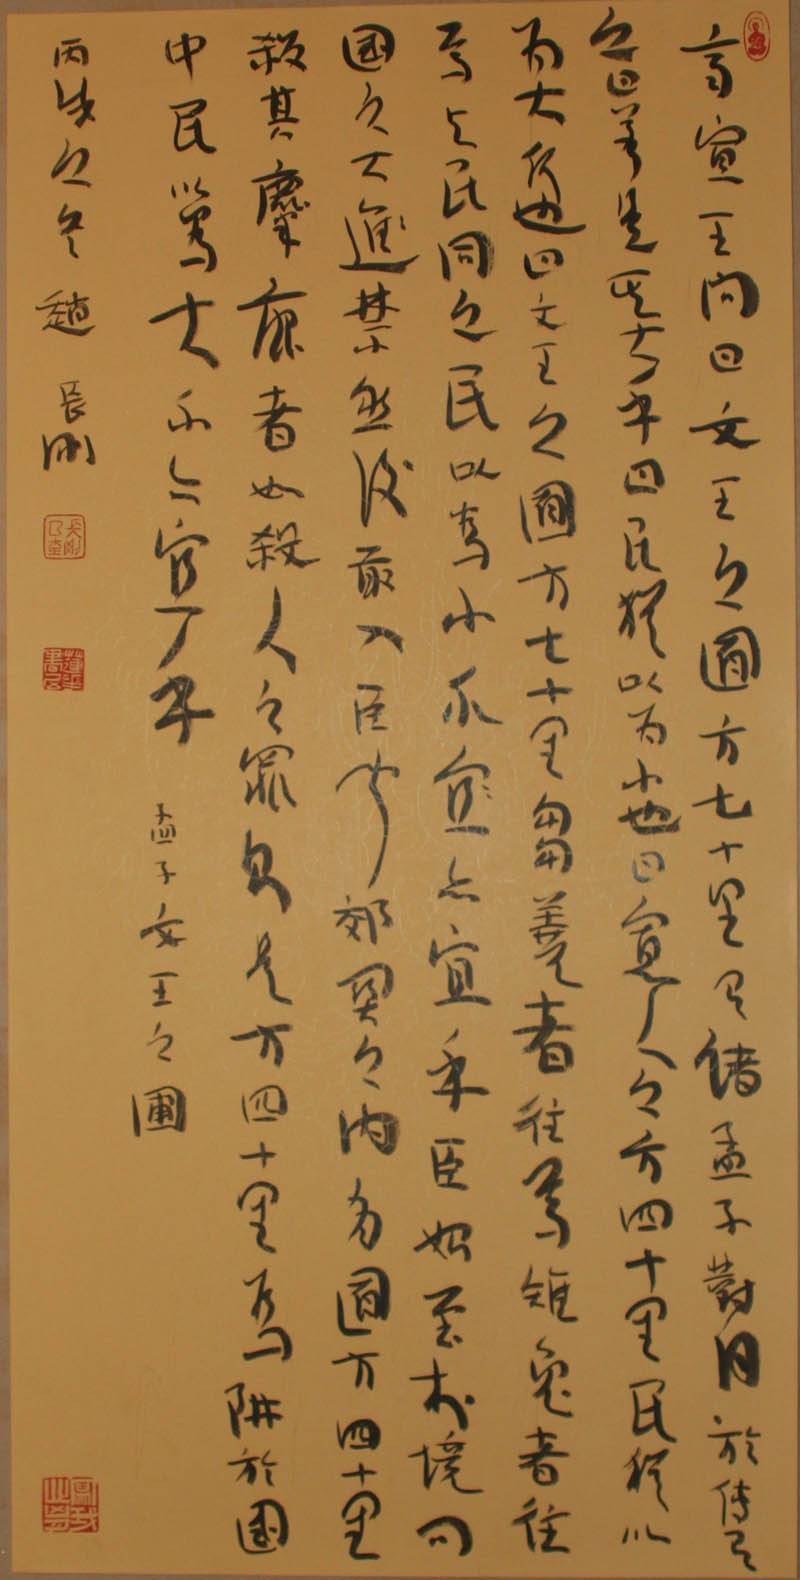 齊宣王問曰文王之囿方七十里有諸孟子對曰於傳有
之曰若是其大乎曰民猶以為小也曰寡人之方四十里民猶以
為大何也曰文王之囿方七十里芻蕘者往焉雉兔者往
焉與民同之民以為小不宜亦宜乎臣始至於境問
國之大進禁然後敢入臣聞郊關之內有囿方四十里
殺其麋鹿者如殺人之罪則是方四十里為阱於國
中民以為大不亦宜乎 孟子文王之圃
丙戌之冬 趙長剛